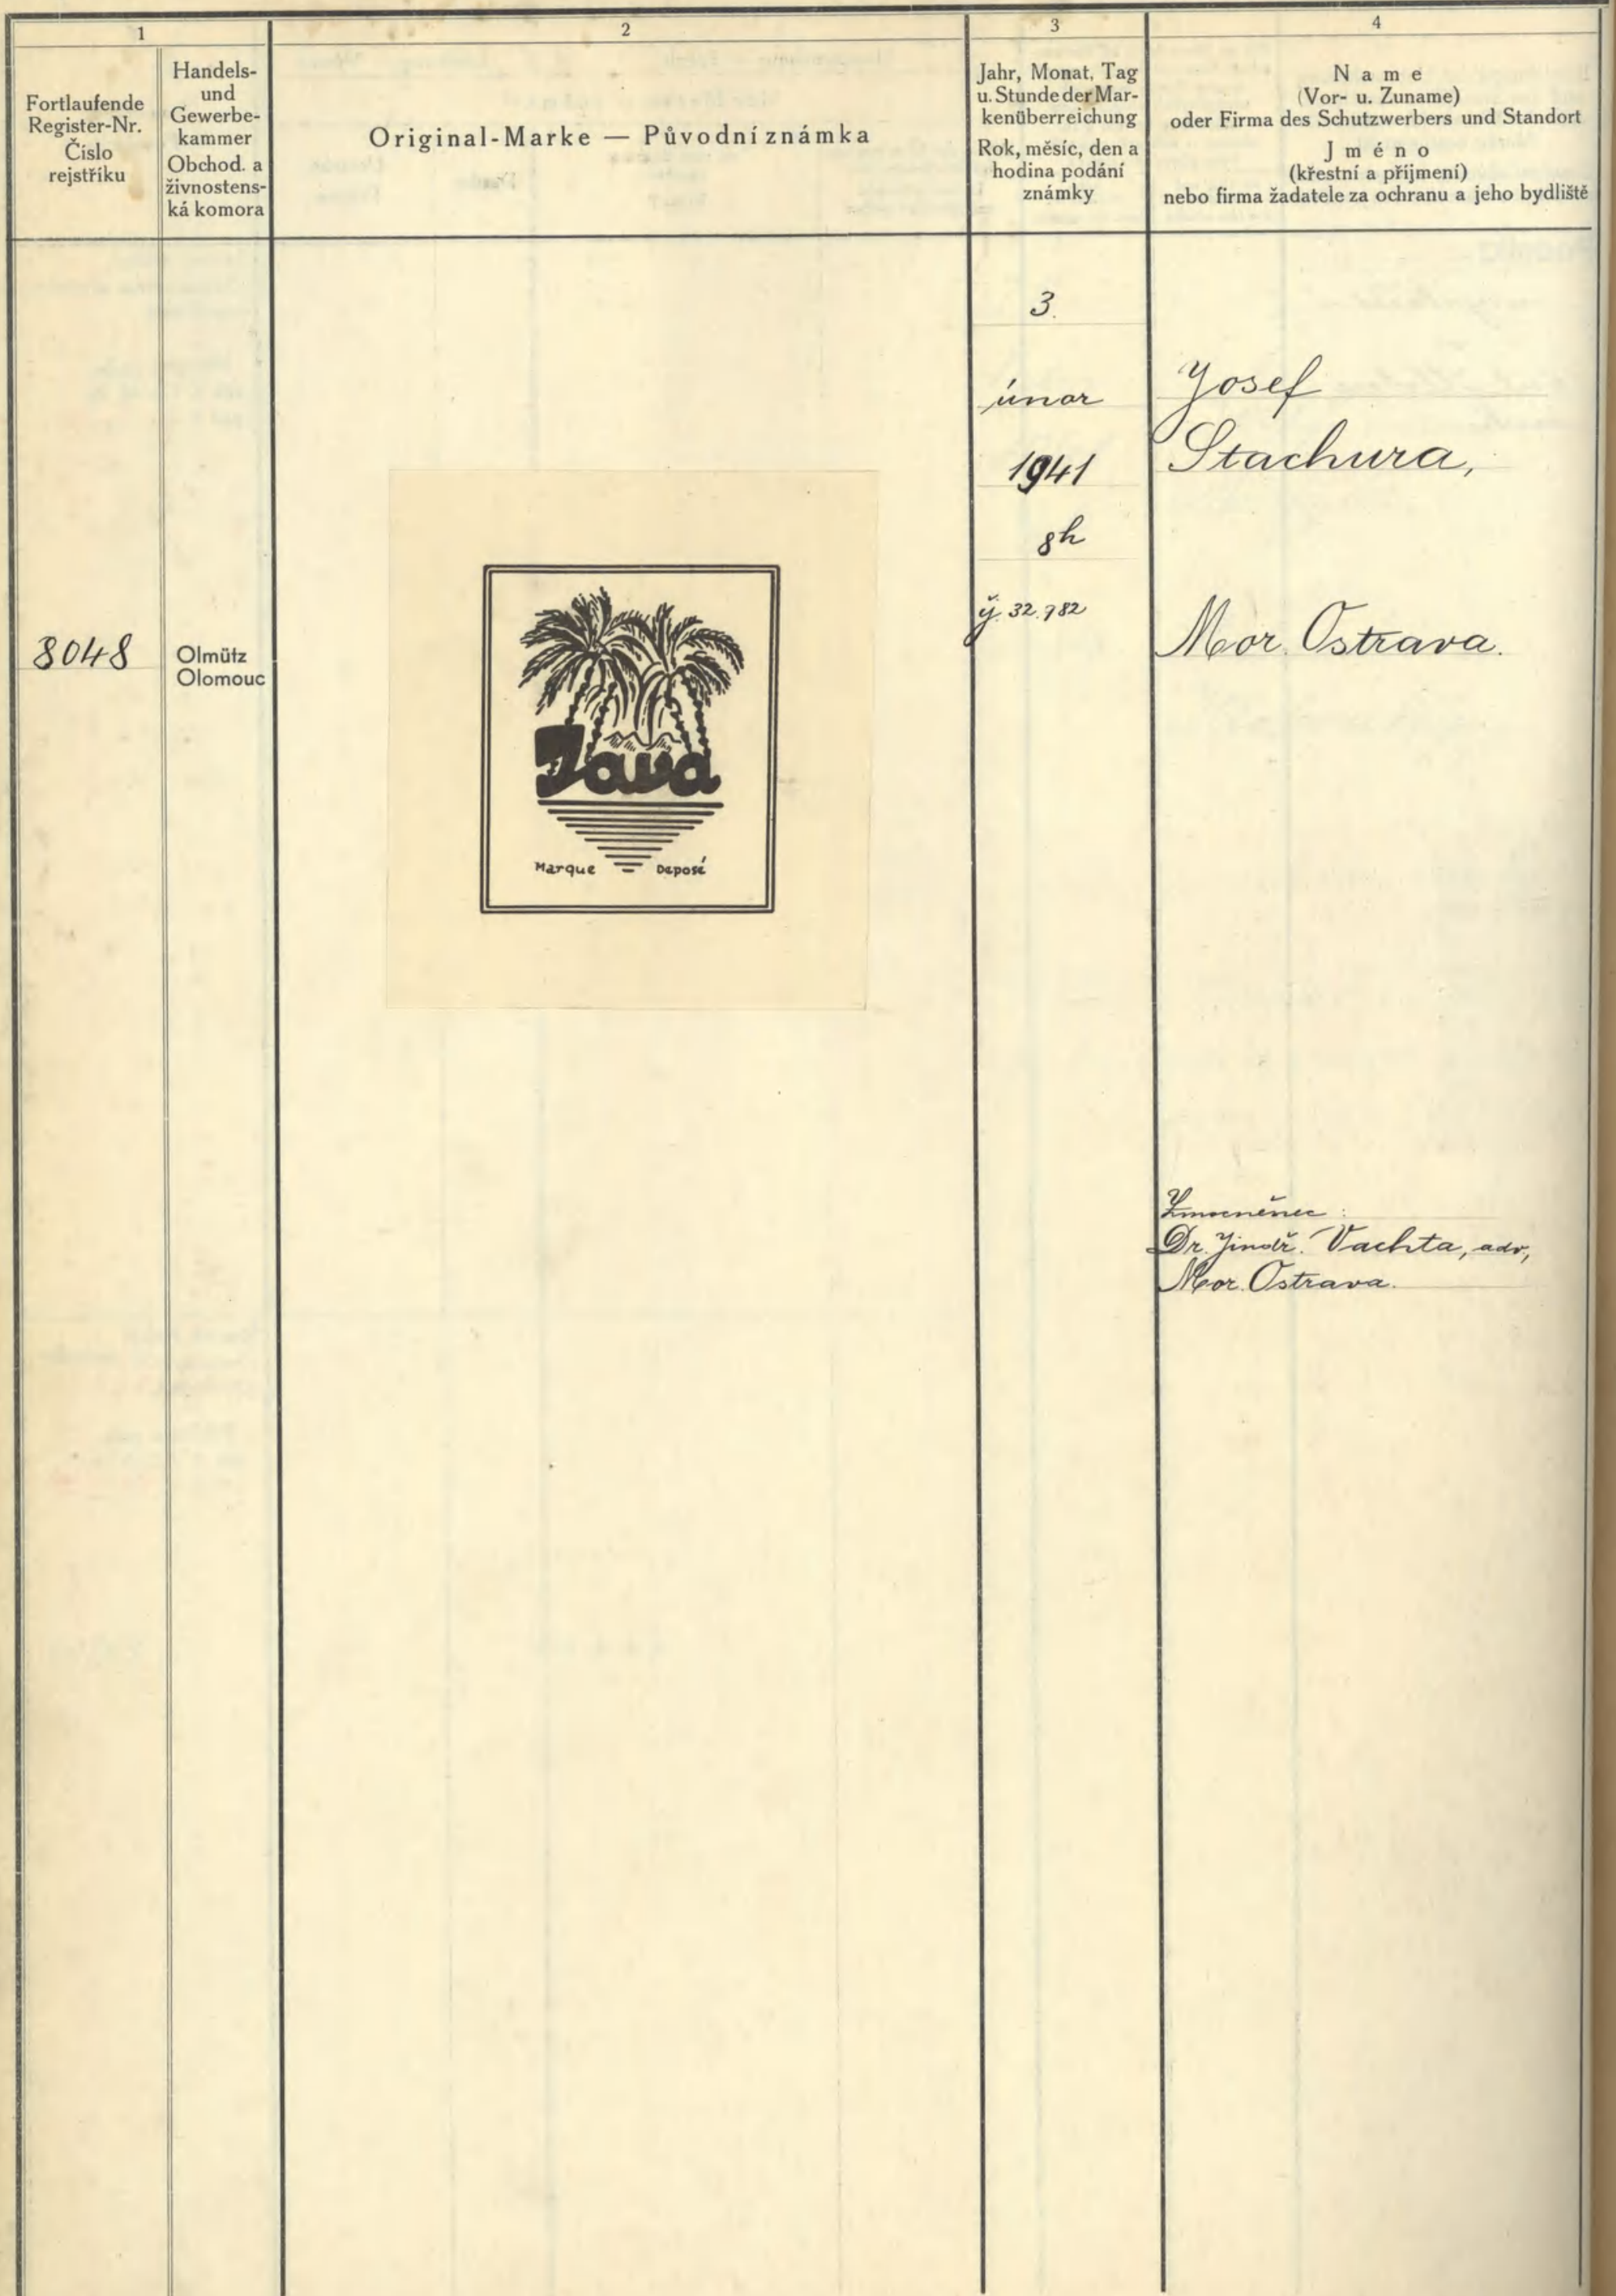 1
2
3
4
Fortlaufende
Register-Nr.
Číslo
rejstříku
Handels-
und
Gewerbe-
kammer
Obchod. a
živnostens-
ká komora
Original-Marke — Původní známka
Jahr, Monat, Tag
u. Stunde der Mar-
kenüberreichung
Rok, měsíc, den a
hodina podání
známky
Name
(Vor- u. Zuname)
oder Firma des Schutzwerbers und Standort
Jméno
(křestní a příjmení)
nebo firma žadatele za ochranu a jeho bydliště
8048
Olmütz
Olomouc
Java
Marque Deposé
3.
únor
1941
8h
32.782
Josef
Stachura,
Mor. Ostrava.
Zmocněnec:
Dr. Jindř. Vachta, adv,
Mor. Ostrava.